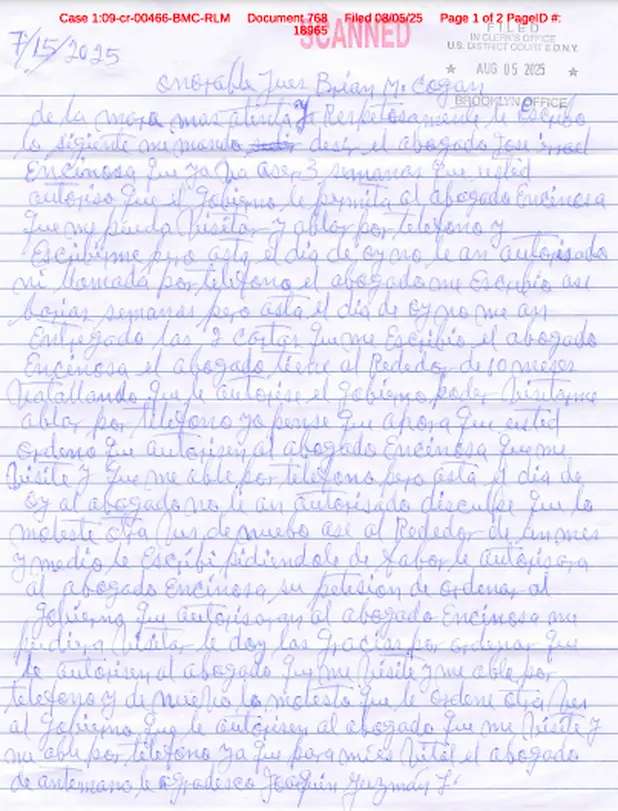 Case 1:09-cr-00466-BMC-RLM Document 768 Filed 08/05/25 Page 1 of 2 PageID #: 18965
SCANNED
FILED
IN CLERK'S OFFICE
U.S. DISTRICT COURT E.D.N.Y.
★ AUG 05 2025 ★
BROOKLYN OFFICE
7/15/2025
onorable Jues Brian M. Cogan
de la mora mas atenta y Respetosamente le Escribo
lo sigiente me mando desir el abogado Jose
Encinosa que ya va aser 3 semanas que usted
autoriso que el gobierno le permita al abogado Encinosa
que me pueda Visitar y ablar por telefono y
Escribirme pero asta el dia de oy no le an autorisado
ni llamada por telefono el abogado me Escribio ase
barias semanas pero asta el dia de oy no me an
Entregado las 2 cartas que me Escribio el abogado
Encinosa el abogado tiene al Rededor de 10 meses
vatallando que le autorise el gobierno poder Visitarme
ablar por telefono yo pense que aora que usted
ordeno que autorisen al abogado Encinosa que me
Visite y que me able por telefono pero asta el dia de
oy al abogado no le an autorisado disculpe que lo
moleste otra ves de nuebo ase al Rededor de un mes
y medio le Escribi pidiendole de fabor le autorisara
al abogado Encinosa su petision de ordenar al
gobierno que autorisaran al abogado Encinosa me
pudiera Visitar le doy las gracias por ordenar que
le autorisen al abogado que me Visite y me able por
telefono y de nuebo lo molesto que le ordene otra ves
al gobierno que le autorisen al abogado que me Visite y
me able por telefono ya que para mi es Vital el abogado
de antemano le agradesco Joaquin Guzmán L.